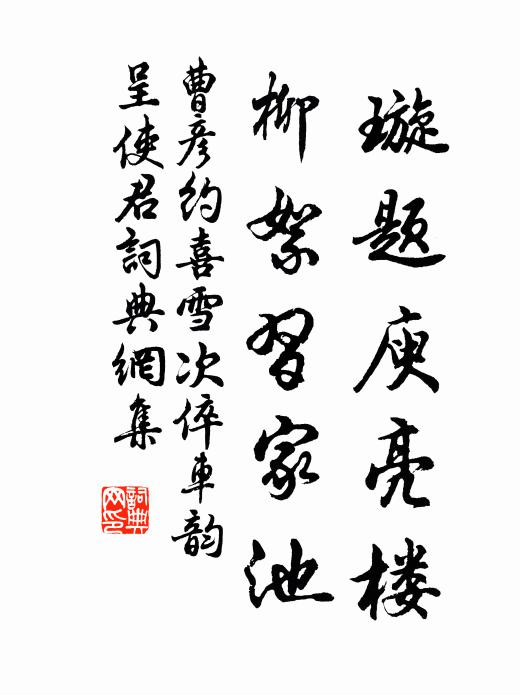 璇题庾亮楼
柳絮習家池
曹彦約喜雪次倅車韵
呈使君詞典網集
詞典网印